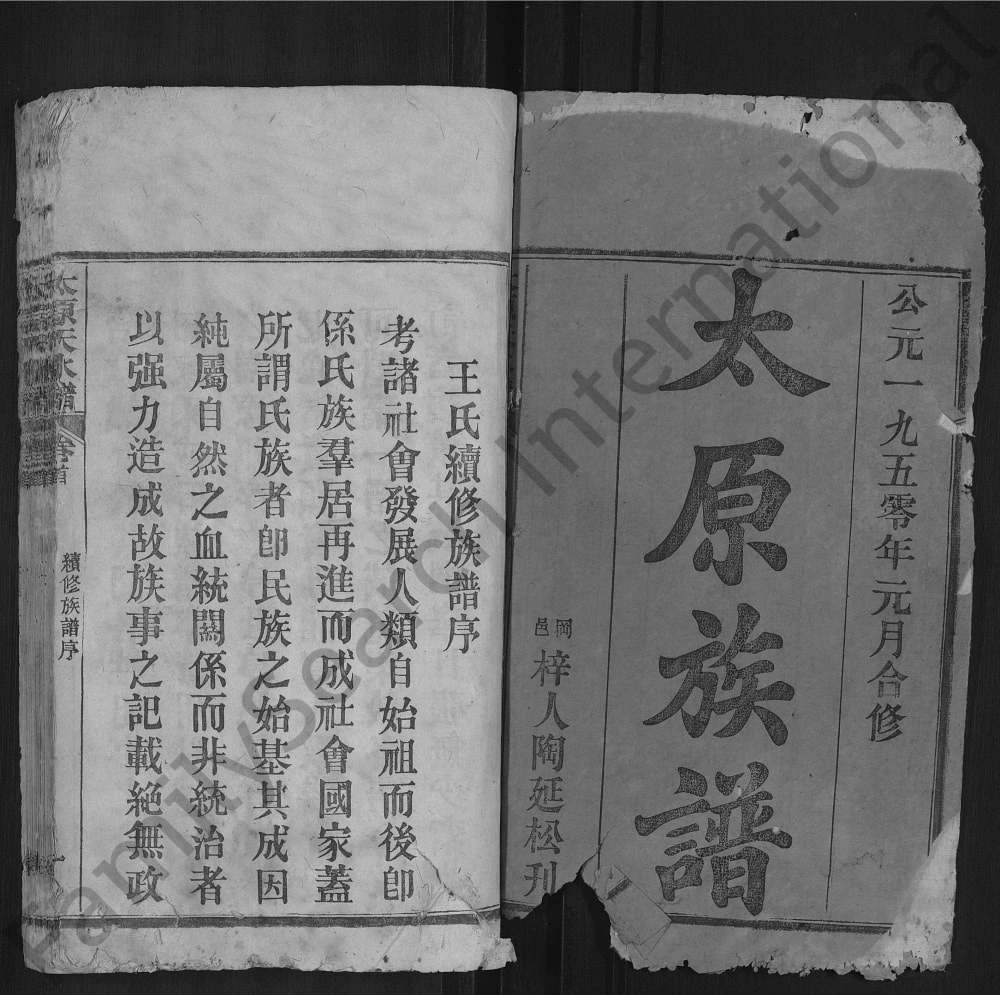 公元一九五零年元月合修
太原族譜
岡邑梓人陶延松刋
王氏續修族譜序
考諸社會發展人類自始祖而後卽
係氏族羣居再進而成社會國家蓋
所謂氏族者卽民族之始基其成因
純屬自然之血統關係而非統治者
以强力造成故族事之記載絕無政
太原天水譜
卷首
續修族譜序
一
FamilySearch International